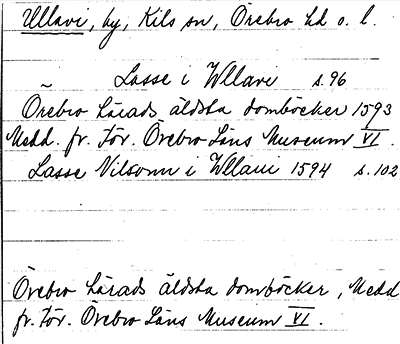 Ullavi, by, Kils sn, Örebro hd o. l.
Lasse i Wllavi s. 96
Örebro härads äldsta domböcker 1593
Medd. fr. För. Örebro Läns Museum VI.
Lasse Nilsonn i Wllavi 1594 s. 102
Örebro härads äldsta domböcker, Medd
fr. För. Örebro Läns Museum VI.